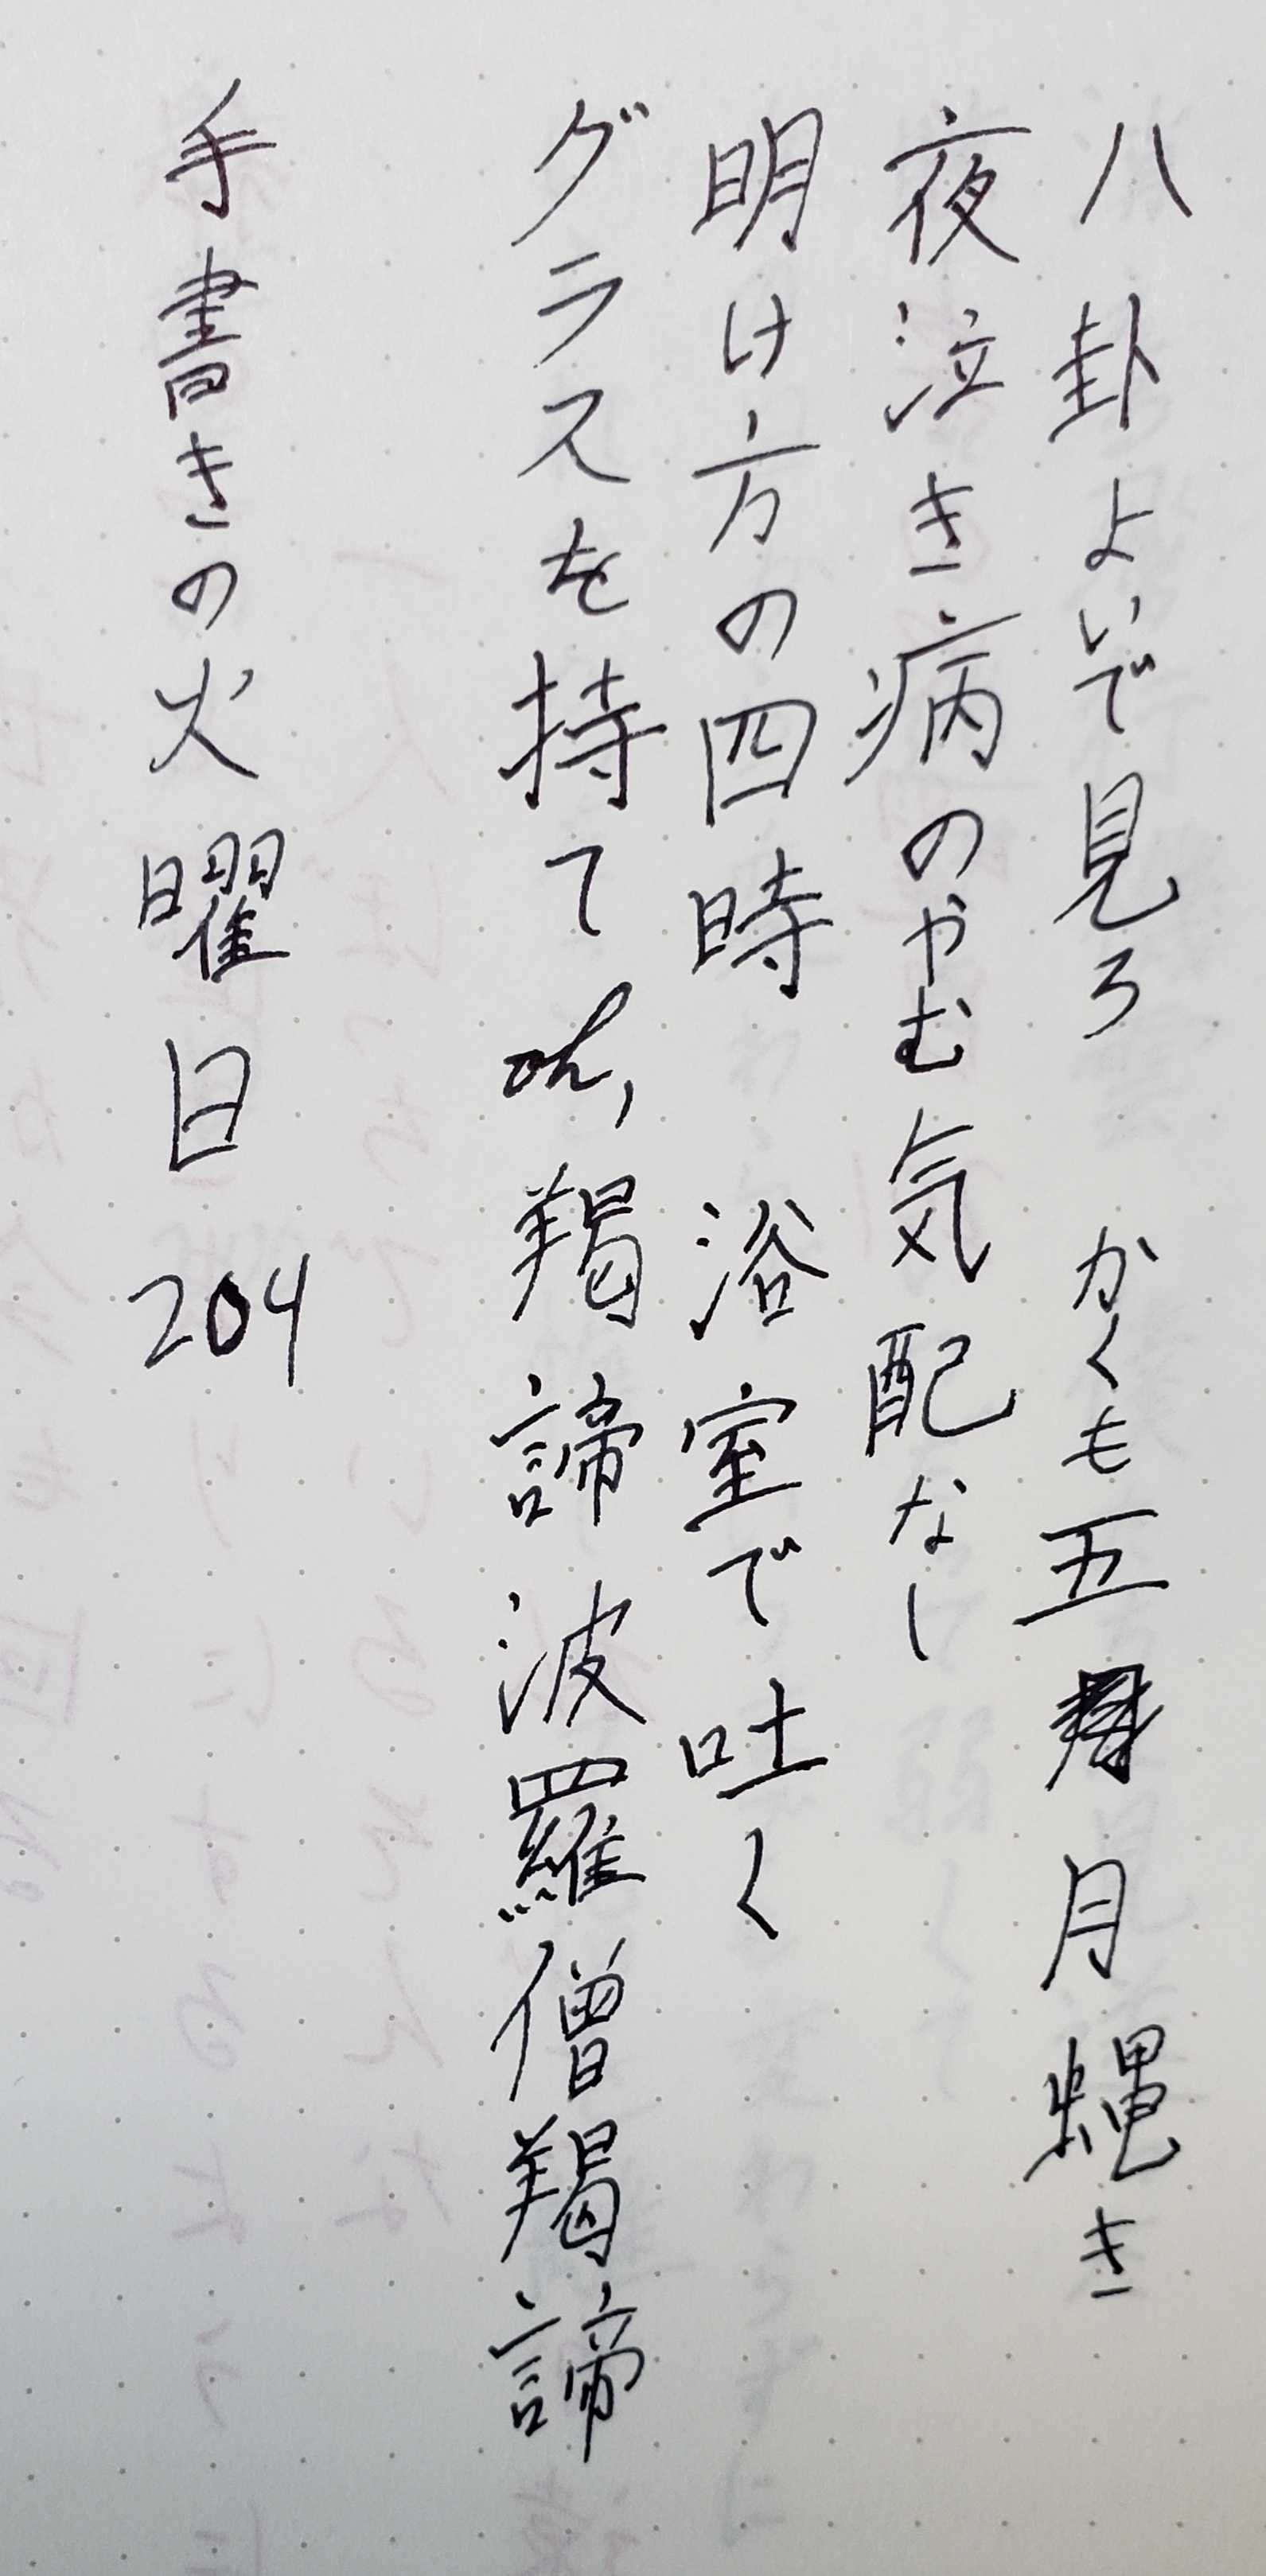 八卦よいで見ろ　かくも五月蝿き
夜泣き病のやむ気配なし
明け方の四時　浴室で吐く
グラスを持て oh, 羯諦波羅僧羯諦
手書きの火曜日 204